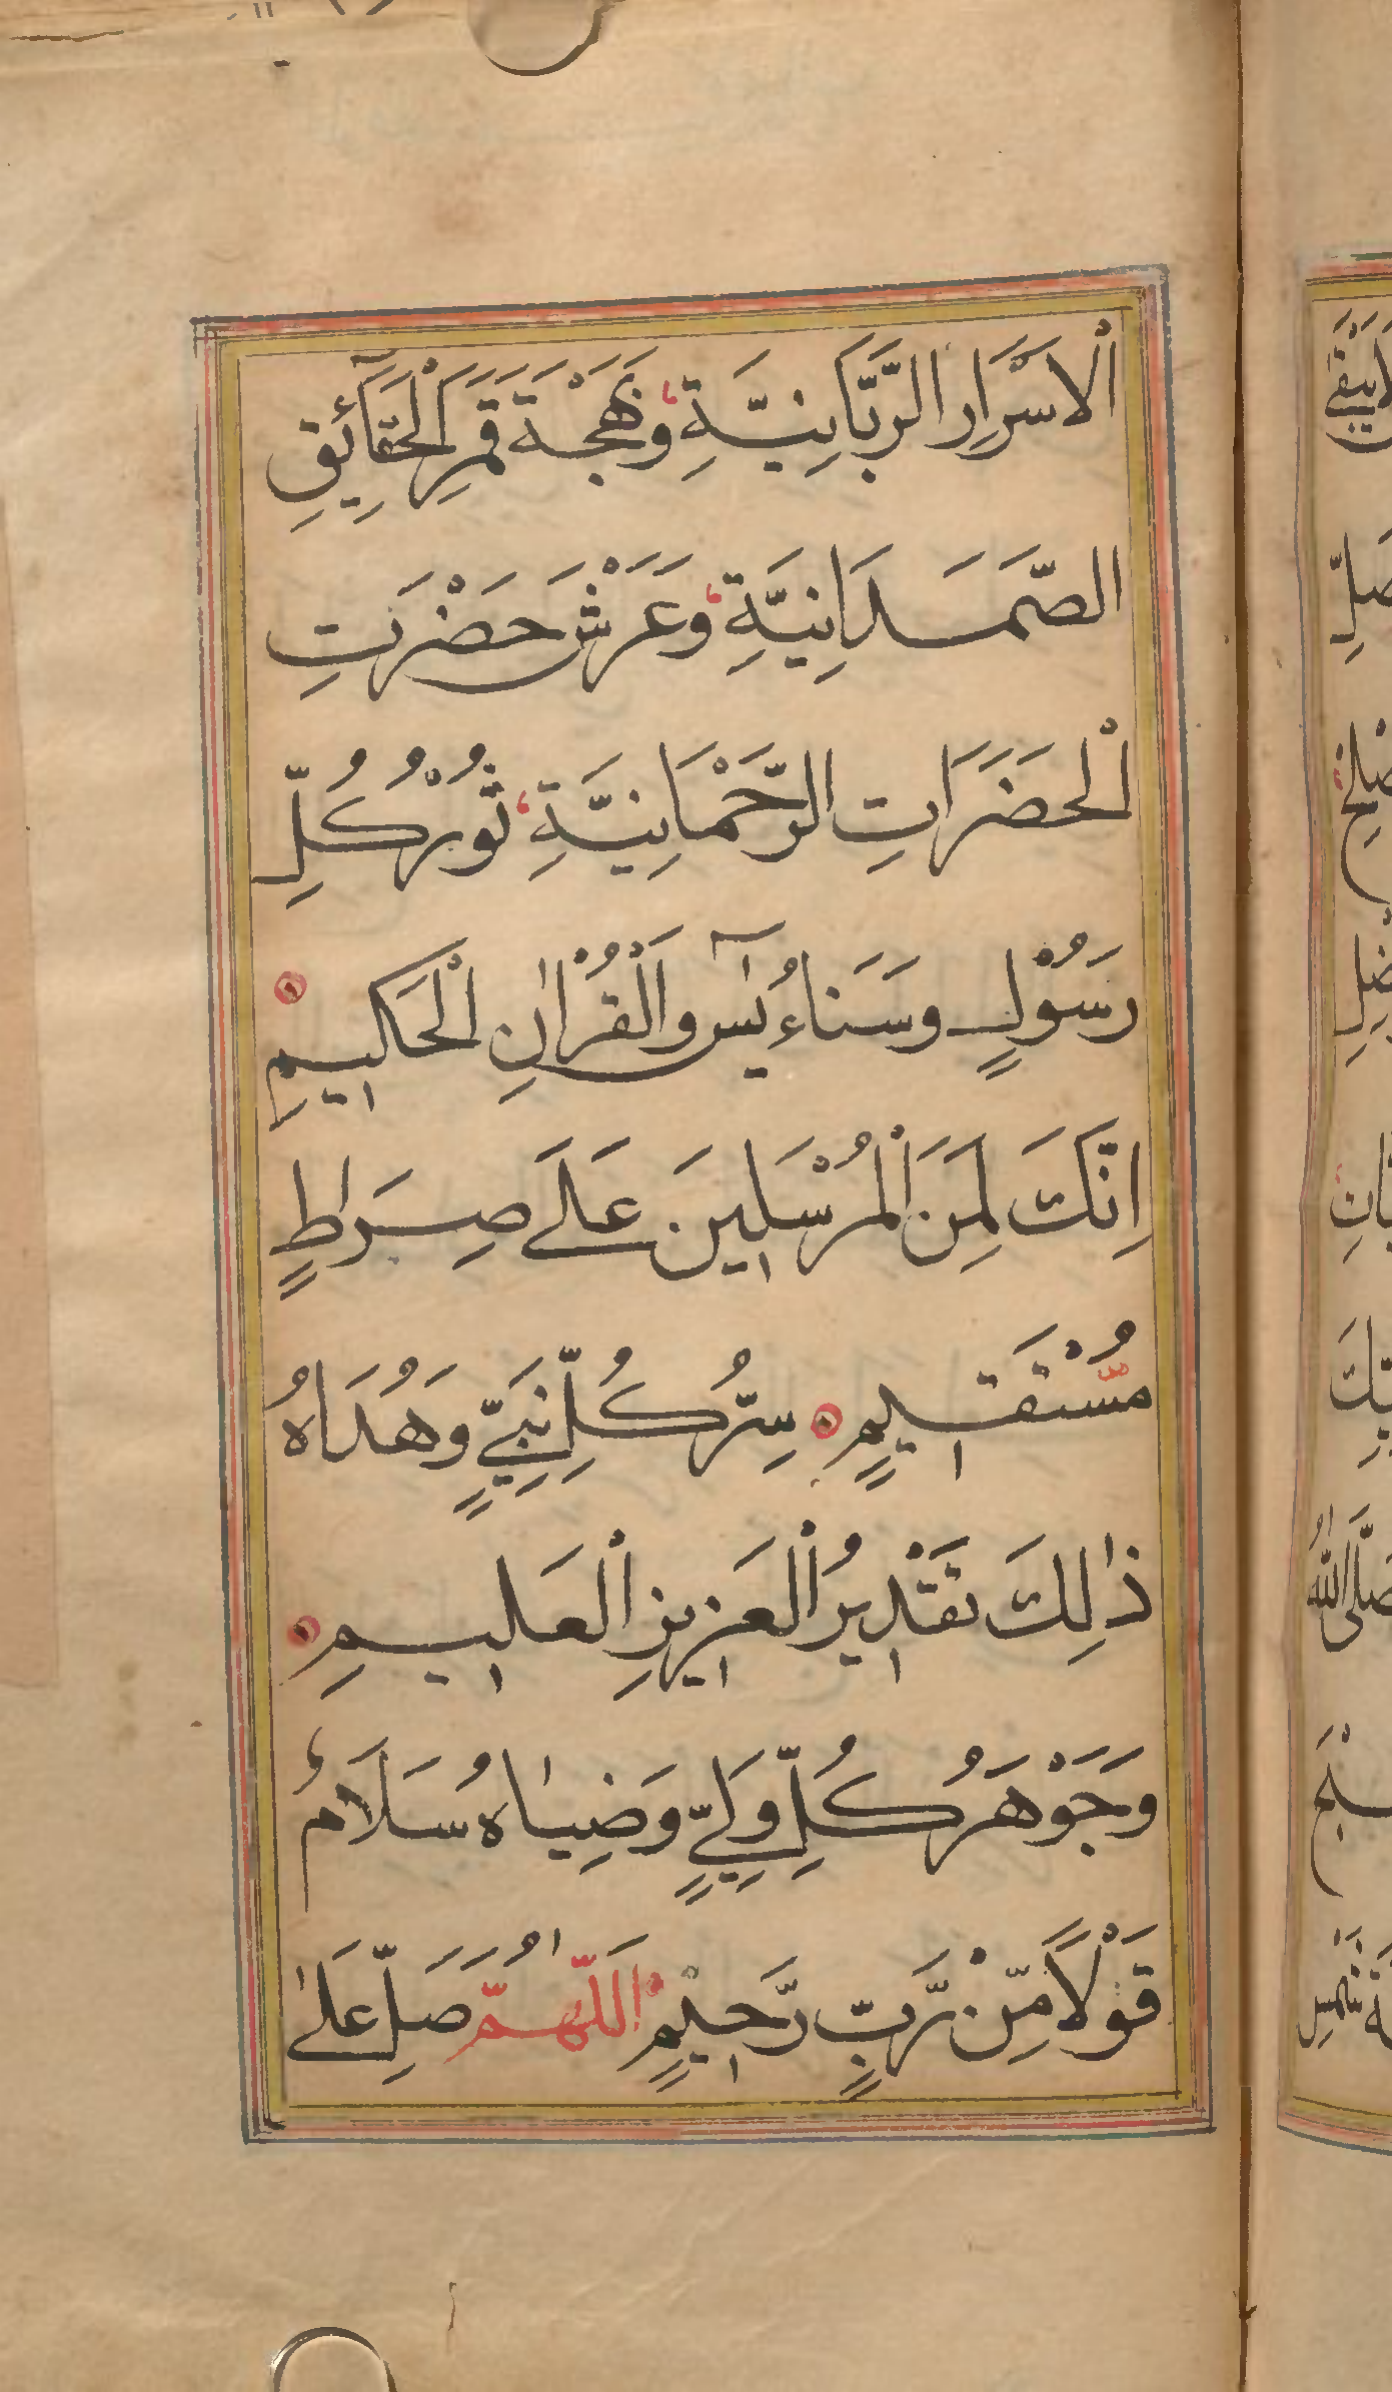 الْاَسْرَارِ الرَّبَّانِيَّةِ، وَبَهْجَةَ قَمَرِ الْحَقَآئِقِ
الصَّمَدَانِيَّةِ، وَعَرْشَ حَضْرَتِ
الْحَضَرَاتِ الرَّحْمَانِيَّةِ، نُوْرُ كُلِّ
رَسُوْلٍ وَسَنَاءُ يٰسٓ وَالْقُرْاٰنِ الْحَكِيمِ
اِنَّكَ لَمِنَ الْمُرْسَلِينَ عَلَى صِرَاطٍ
مُّسْتَقِيمٍ سِرُّ كُلِّ نَبِيٍّ وَهُدَاهُ
ذٰلِكَ تَقْدِيرُ الْعَزِيزِ الْعَلِيمِ
وَجَوْهَرُ كُلِّ وَلِيٍّ وَضِيٰاهُ سَلَامٌ
قَوْلًا مِّنْ رَّبٍّ رَّحِيْمٍ اَللّٰهُمَّ صَلِّ عَلٰى